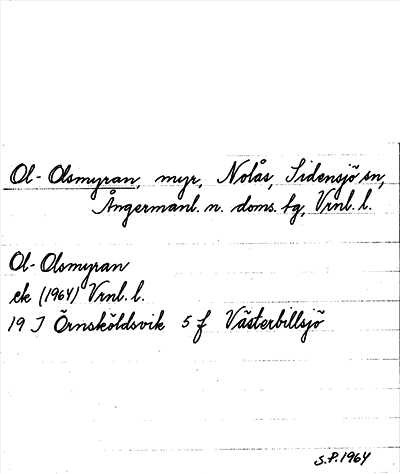 Ol-Olsmyran, myr, Nolås, Sidensjö sn,
Ångermanl. n. doms. tg, Vrnl. l.
Ol-Olsmyran
ek (1964) Vrnl. l.
19 J Örnsköldsvik 5 f Västerbillsjö
S.P. 1964